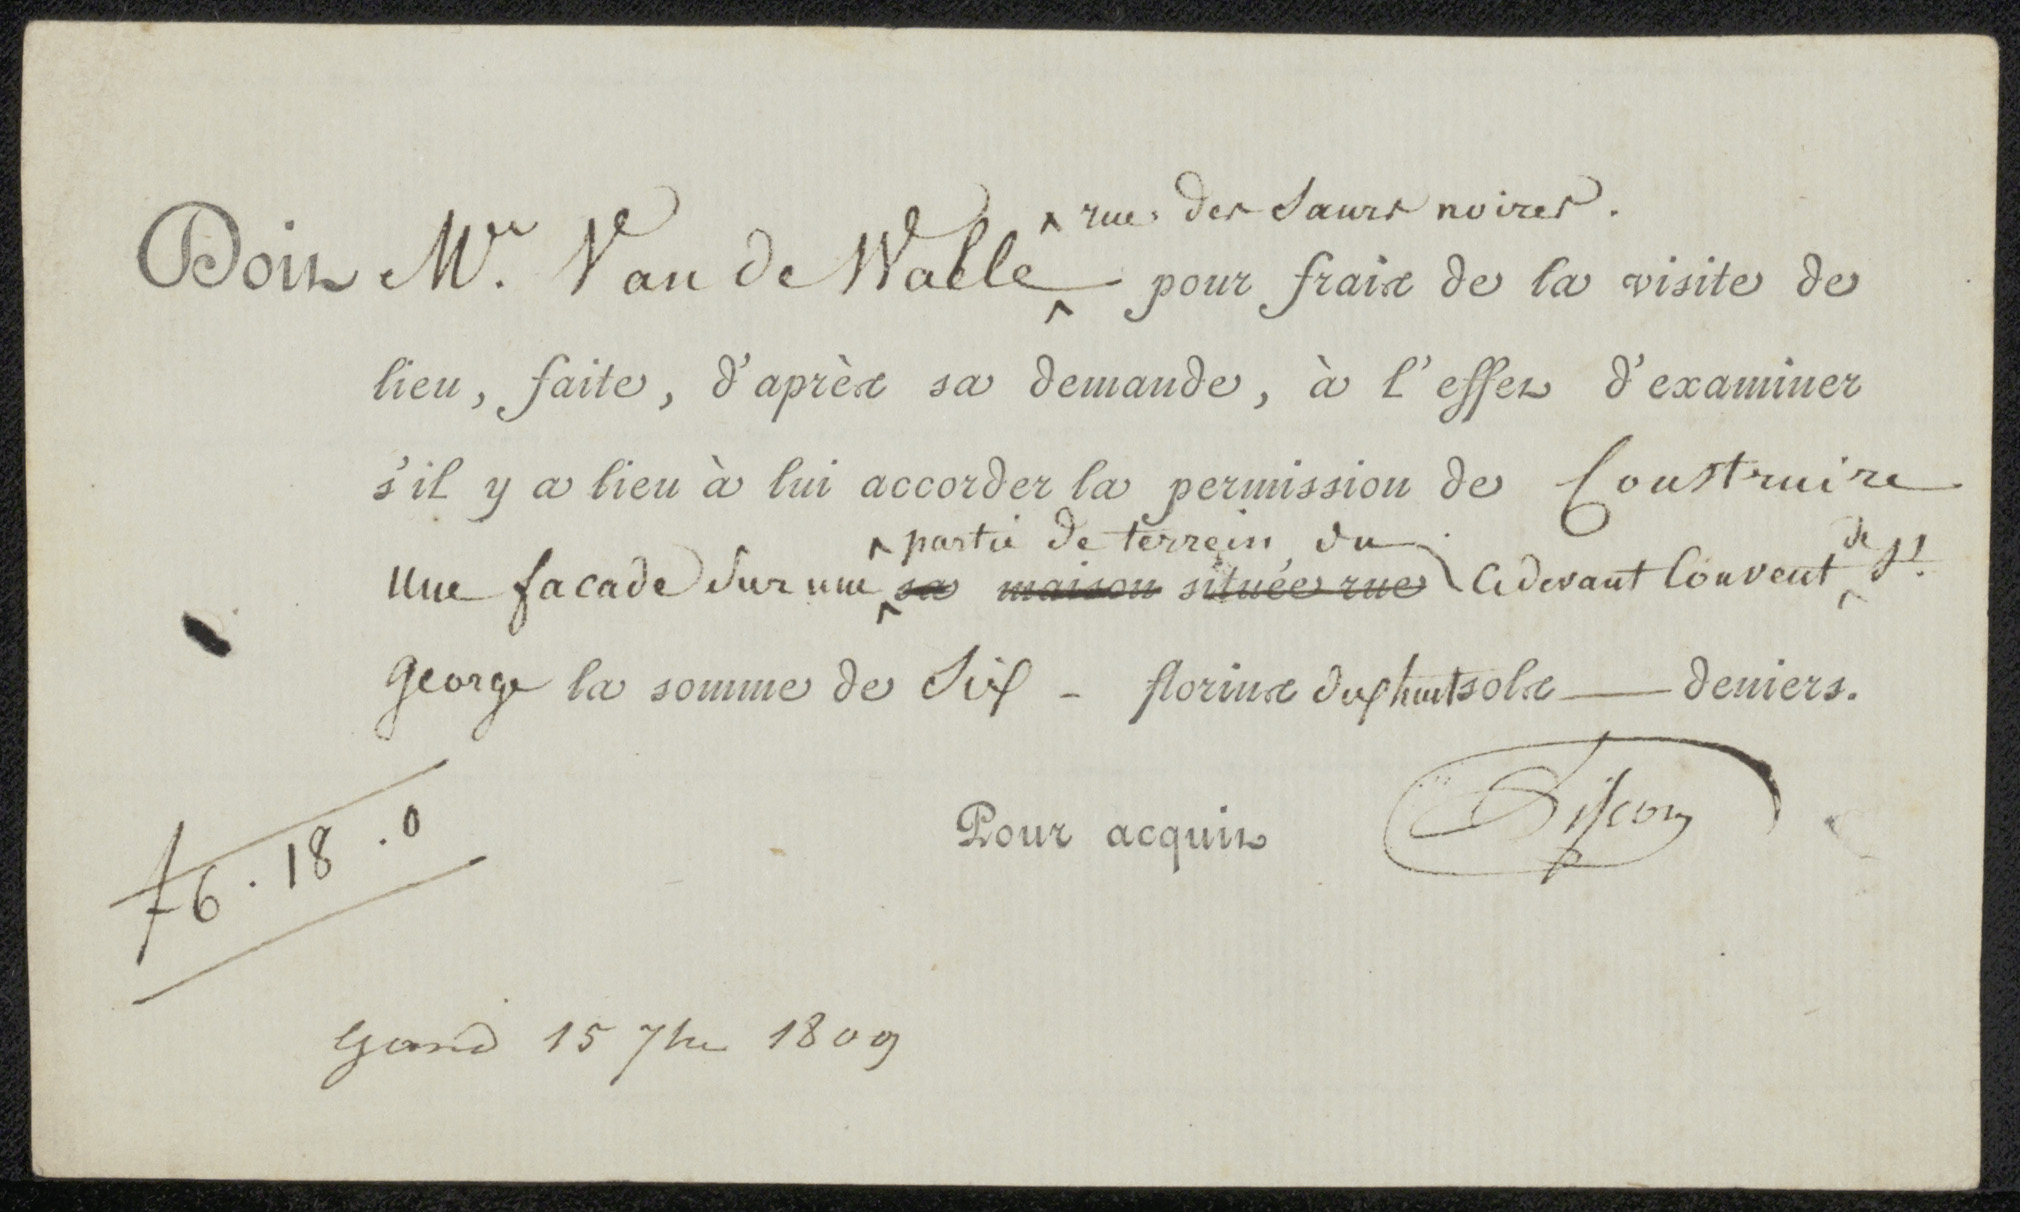 rue des Sœurs noires.
Doit Mr. Van de Walle pour frais de la visite de
lieu, faite, d'après sa demande, à l'effet d'examiner
s'il y a lieu à lui accorder la permission de Construire
partie de terrein du de
Une facade sur une sa maison située rue Cidevant Couvent St.
George la somme de Six - florins dixhuit sols — deniers.
f 6 . 18 . 0
Pour acquit
Gand 15 7bre 1809